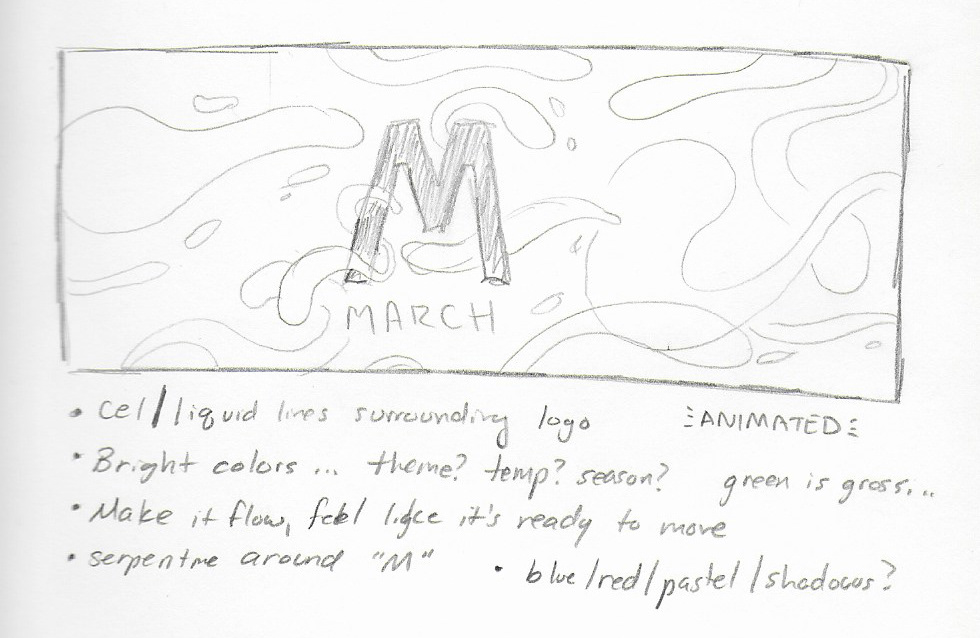 M
MARCH
• Cel/liquid lines surrounding logo
ANIMATED
• Bright colors... theme? temp? season? green is gross...
• Make it flow, feel like it's ready to move
• serpentine around "M"
• blue/red/pastel/shadows?